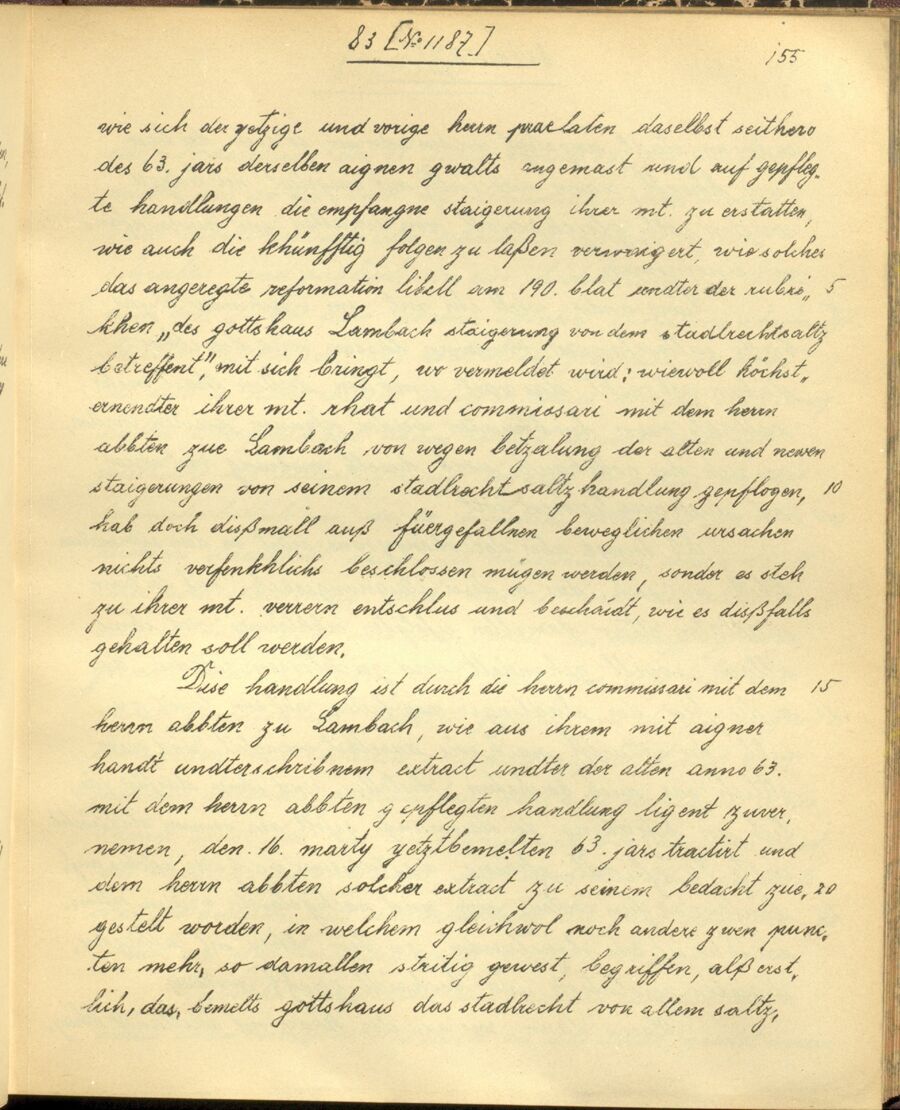 83 [№ 1187]
155
wie sich der yetzige und vorige herrn praelaten daselbst seithero
des 63. jars derselben aignen gwalts angemast und auf gepfleg-
te handlungen die empfangne staigerung ihrer mt. zu erstatten,
wie auch die khünfftig folgen zu laßen verwaigert, wie solches
das angeregte reformation libell am 190. blat undter der rubri„ 5
khen „des gottshaus Lambach staigerung von dem stadlrechtsaltz
betreffent", mit sich bringt, wo vermeldet wird: wiewoll höchst„
ernendter ihrer mt. rhat und commissari mit dem herrn
abbten zue Lambach von wegen betzalung der alten und newen
staigerungen von seinem stadlrecht saltz handlung gepflogen, 10
hab doch dißmall auß füergefallnen beweglichen ursachen
nichts verfenkhlichs beschlossen mügen werden, sonder es steh
zu ihrer mt. verrern entschlus und beschaidt, wie es dißfalls
gehalten soll werden.
Dise handlung ist durch die herrn commissari mit dem 15
herrn abbten zu Lambach, wie aus ihrem mit aigner
handt undterschribnem extract undter der alten anno 63.
mit dem herrn abbten gepflegten handlung ligent zuver„
nemen, den 16. marty yetztbemelten 63. jars tractirt und
dem herrn abbten solcher extract zu seinem bedacht zue„ 20
gestelt worden, in welchem gleichwol noch andere zwen punc„
ten mehr, so damallen stritig gewest, begriffen, alß erst„
lich, das, bemelts gottshaus das stadlrecht von allem saltz,